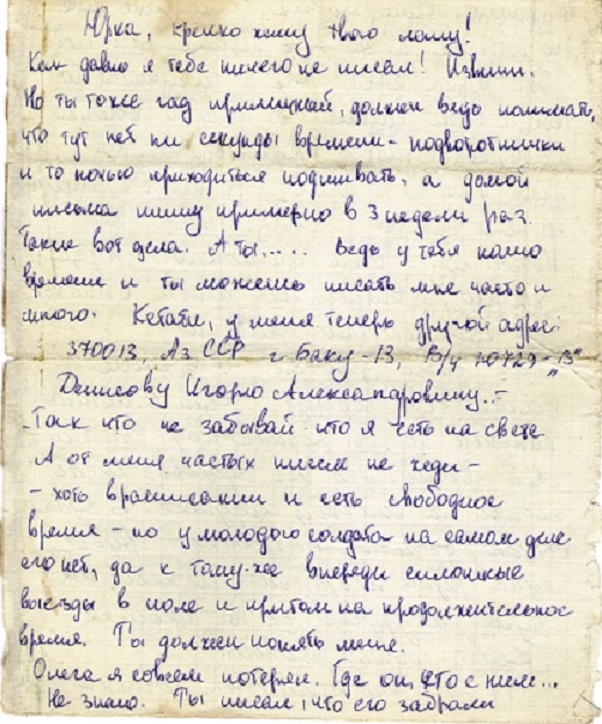 Юрка, крепко жму твою лапу!
Как давно я тебе ничего не писал! Извини.
Но ты тоже гад приличный, должен ведь понимать,
что тут нет ни секунды времени - подворотнички
и то ночью приходиться подшивать, а домой
письма пишу примерно в 3 недели раз.
Такие вот дела. А ты..... Ведь у тебя
времени и ты можешь писать мне часто и
много. Кстати, у меня теперь другой адрес:
370013, Аз ССР г. Баку-13, В/ч 10729 „В"
Денисову Игорю Александровичу.-
Так что не забывай что я есть на свете
А от меня частых писем не жди -
- хоть в расписании и есть свободное
время - но у молодого солдата на самом деле
его нет, да к тому-же впереди сплошные
выезды в поле и притом на продолжительное
время. Ты должен понять меня.
Олега я совсем потерял. Где он, что с ним...
Не знаю. Ты писал, что его забрали